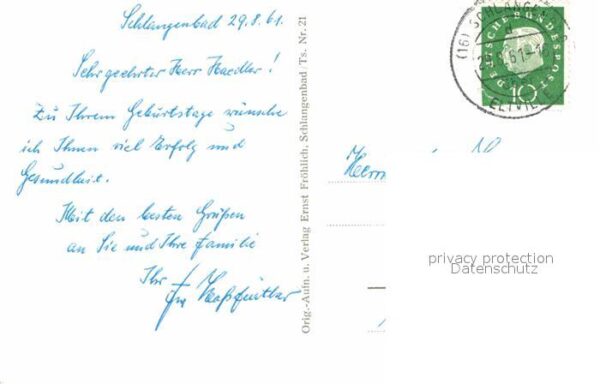 Schlangenbad 29.8.61.
Sehr geehrter Herr Haedler!
Zu Ihrem Geburtstage wünsche
ich Ihnen viel Erfolg und
Gesundheit.
Mit den besten Grüßen
an Sie und Ihre Familie
Ihr
Orig.-Aufn. u. Verlag Ernst Fröhlich, Schlangenbad/Ts. Nr. 21
(16) SCHLANGENBAD
29.8.61
ELTVILLE
DEUTSCHE BUNDESPOST
10
Herrn
privacy protection
Datenschutz